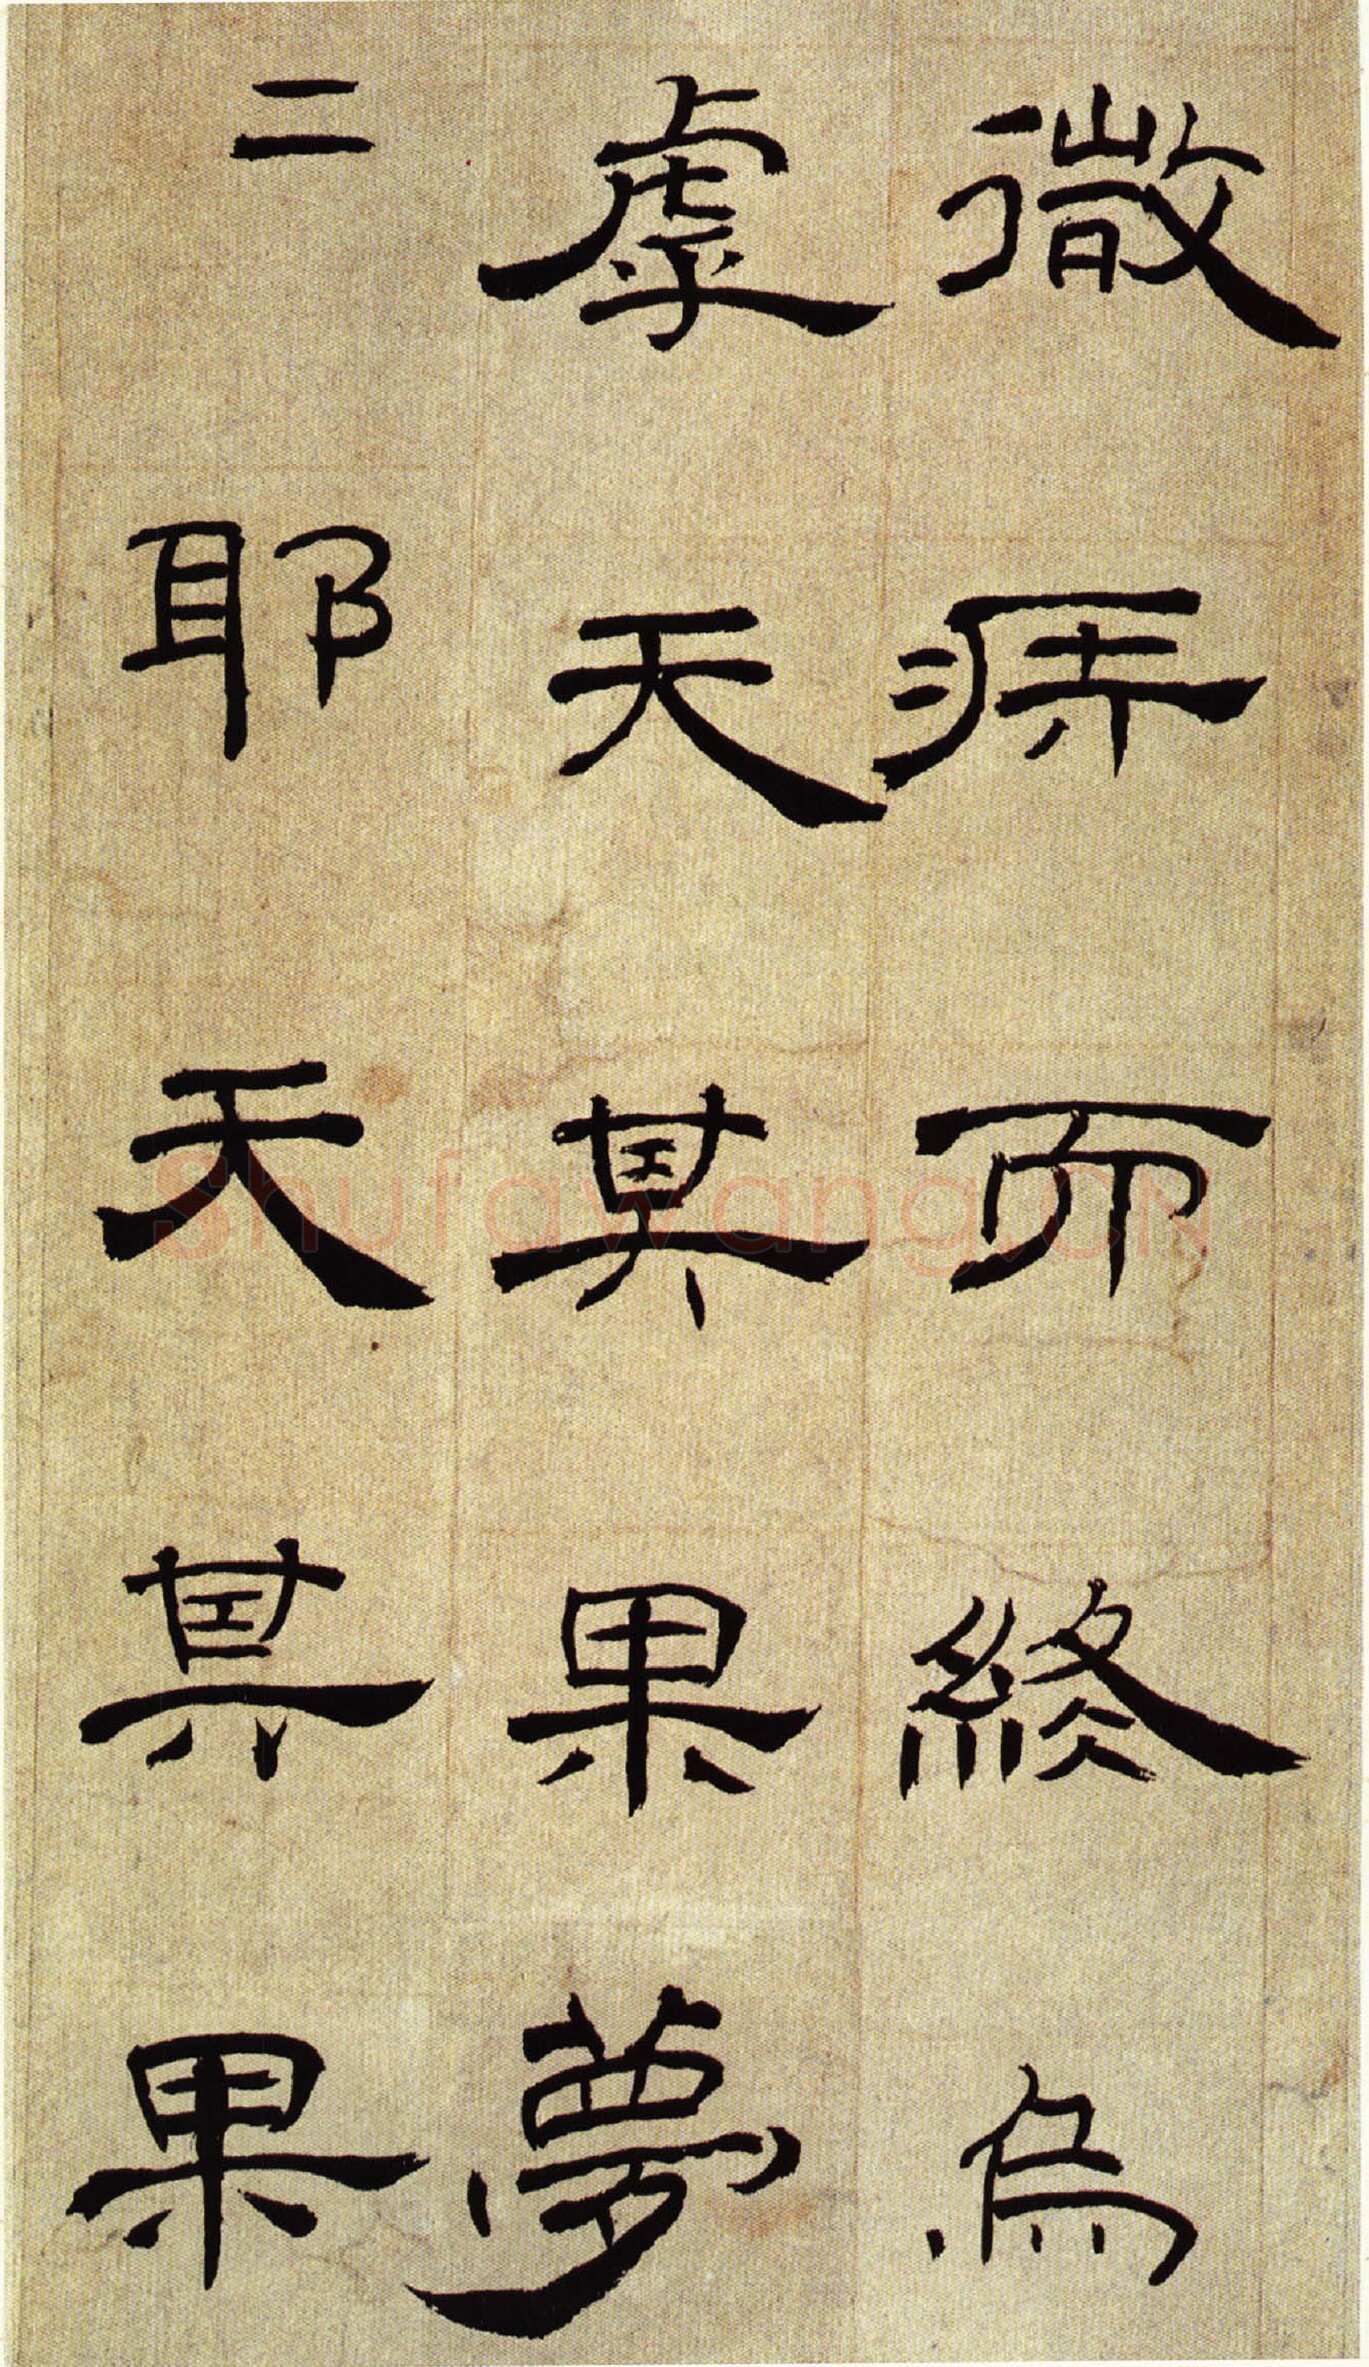 微疾而終烏
虖天其果夢
二耶天其果
Shufawang.CN